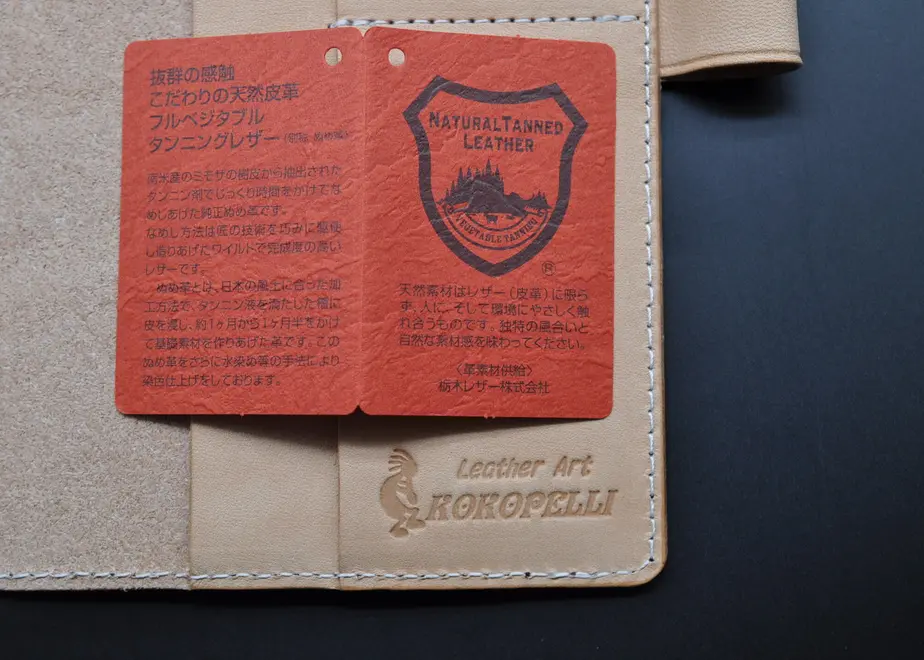 抜群の感触
こだわりの天然皮革
フルベジタブル
タンニングレザー
南米産のミモザの樹皮から抽出された
タンニン剤でじっくり時間をかけてな
めしあげた純正ぬめ革です。
なめし方法は匠の技術を巧みに駆使
し造りあげたワイルドで完成度の高い
レザーです。
ぬめ革とは、日本の風土に合った加
工方法で、タンニン液を満たした槽に
皮を浸し、約1ヶ月から1ヶ月半をかけ
て基礎素材を作りあげた革です。この
ぬめ革をさらに水染め等の手法により
染色仕上げをしております。
NATURAL TANNED
LEATHER
VEGETABLE TANNING
®
天然素材はレザー(皮革)に限ら
ず、人に、そして環境にやさしく触
れ合うものです。独特の風合いと
自然な素材感を味わってください。
〈革素材供給〉
栃木レザー株式会社
Leather Art
KOKOPELLI